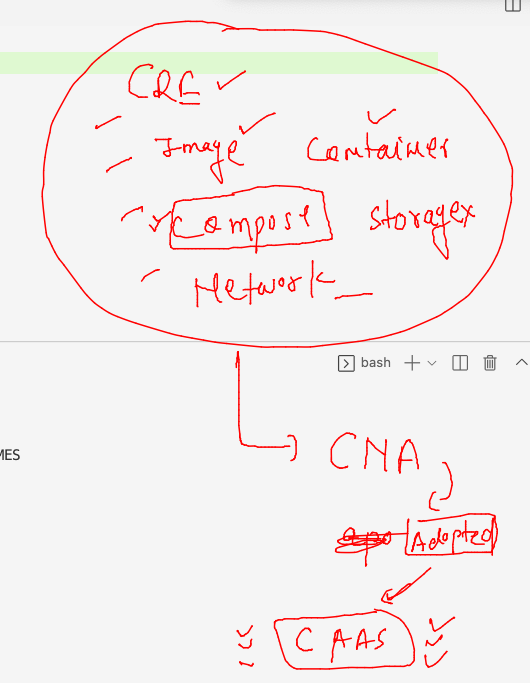 CRE
Image Container
Compose Storagex
Network
bash
MES
CNA
Adopted
CAAS